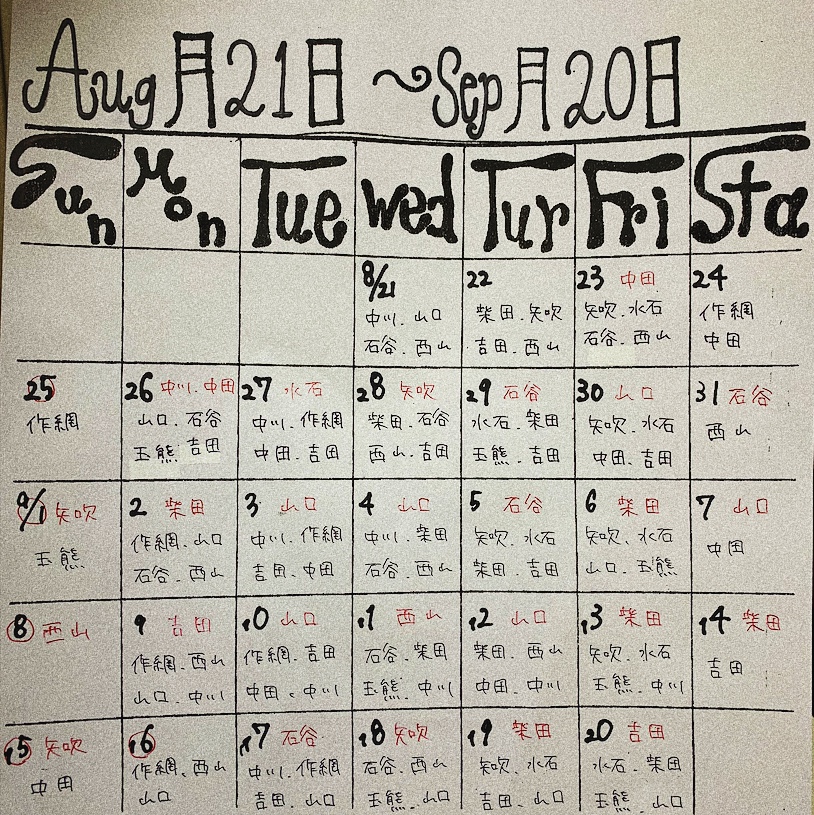 Aug月21日 ~Sep月20日
Sun Mon Tue Wed Tur Fri Sta
8/21
中川. 山口
石谷. 西山
22
柴田. 矢吹
吉田. 西山
23 中田
矢吹. 水石
石谷. 西山
24
作網
中田
25
作網
26 中川. 中田
山口. 石谷
玉熊 吉田
27 水石
中川. 作網
中田. 吉田
28 矢吹
柴田. 石谷
西山. 吉田
29 石谷
水石. 柴田
玉熊. 吉田
30 山口
矢吹. 水石
中田. 吉田
31 石谷
西山
9/1 矢吹
玉熊
2 柴田
作網. 山口
石谷. 西山
3 山口
中川. 作網
吉田. 中田
4 山口
中川. 柴田
石谷. 西山
5 石谷
矢吹. 水石
柴田. 吉田
6 柴田
矢吹. 水石
山口. 玉熊
7 山口
中田
8 西山
9 吉田
作網. 西山
山口. 中川
10 山口
作網. 吉田
中田. 中川
11 西山
石谷. 柴田
玉熊. 中川
12 山口
柴田. 西山
中田. 中川
13 柴田
矢吹. 水石
玉熊. 中川
14 柴田
吉田
15 矢吹
中田
16
作網. 西山
山口
17 石谷
中川. 作網
吉田. 山口
18 矢吹
石谷. 西山
玉熊. 山口
19 柴田
矢吹. 水石
吉田. 山口
20 吉田
水石. 柴田
玉熊. 山口